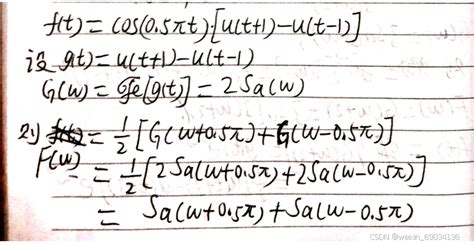 f(t)=cos(0.5πt)[u(t+1)-u(t-1)]
设 g(t)=u(t+1)-u(t-1)
G(w)=ℱ[g(t)]=2Sa(w)
则 F(w)=1/2[G(w+0.5π)+G(w-0.5π)]
=1/2[2Sa(w+0.5π)+2Sa(w-0.5π)]
= Sa(w+0.5π)+Sa(w-0.5π)
CSDN @wesan_69034136